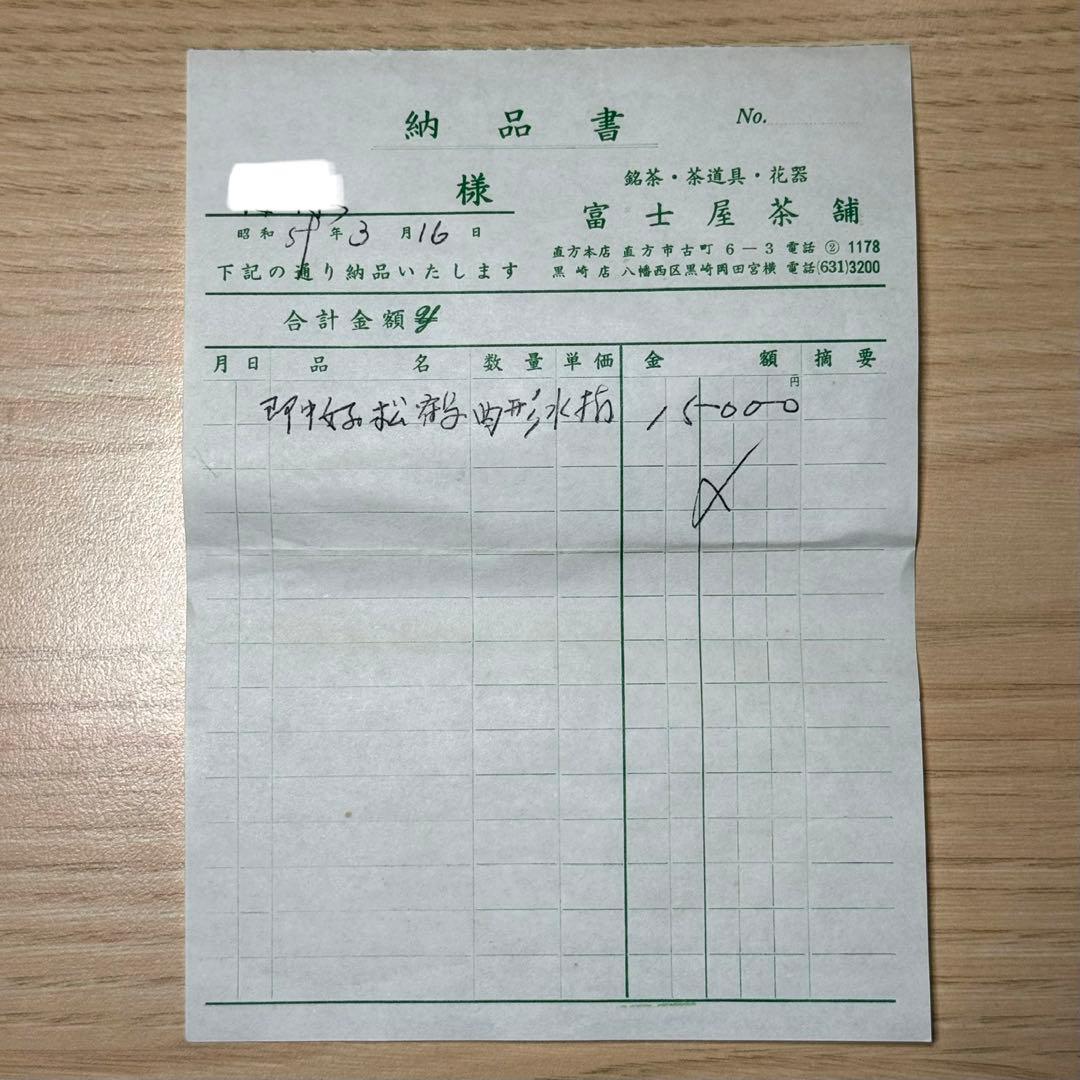 納品書 No.
様
銘茶・茶道具・花器
富士屋茶舗
直方本店 直方市古町6-3 電話②1178
黒崎店 八幡西区黒崎岡田宮横 電話(631)3200
昭和 年3月16日
下記の通り納品いたします
合計金額
月日 品名 数量 単価 金額 摘要
円
即中好松 形水指 15000